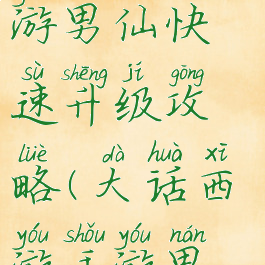 游男仙快
sù shēng jí gōng
速升级攻
lüè dà huà xī
略(大话西
yóu shǒu yóu nán
游手游男